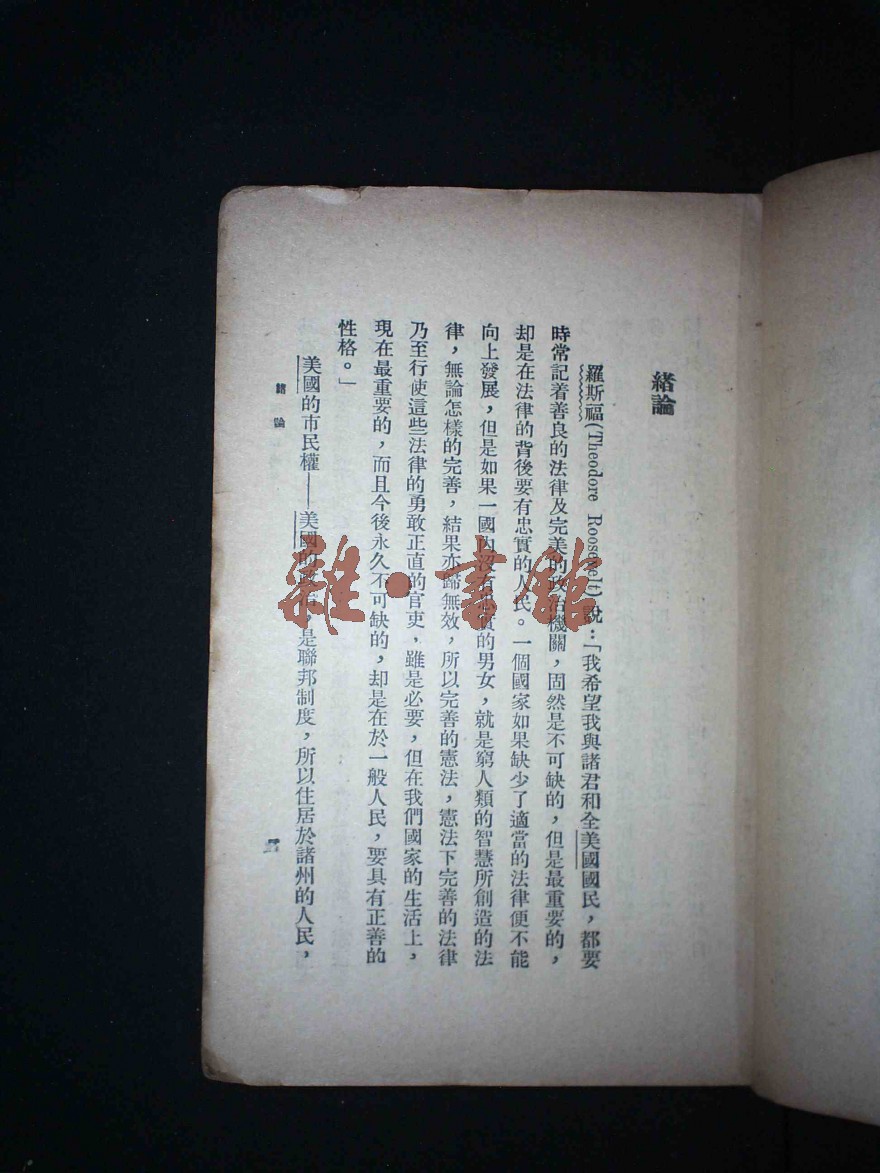 緒論
羅斯福(Theodore Roosevelt)說:「我希望我與諸君和全美國國民,都要
時常記着善良的法律及完美的政治機關,固然是不可缺的,但是最重要的,
却是在法律的背後要有忠實的人民。一個國家如果缺少了適當的法律便不能
向上發展,但是如果一國內沒有忠實的男女,就是窮人類的智慧所創造的法
律,無論怎樣的完善,結果亦歸無效,所以完善的憲法,憲法下完善的法律
乃至行使這些法律的勇敢正直的官吏,雖是必要,但在我們國家的生活上,
現在最重要的,而且今後永久不可缺的,却是在於一般人民,要具有正善的
性格。」
美國的市民權——美國的政治,是聯邦制度,所以住居於諸州的人民,
緒論
雜·書館